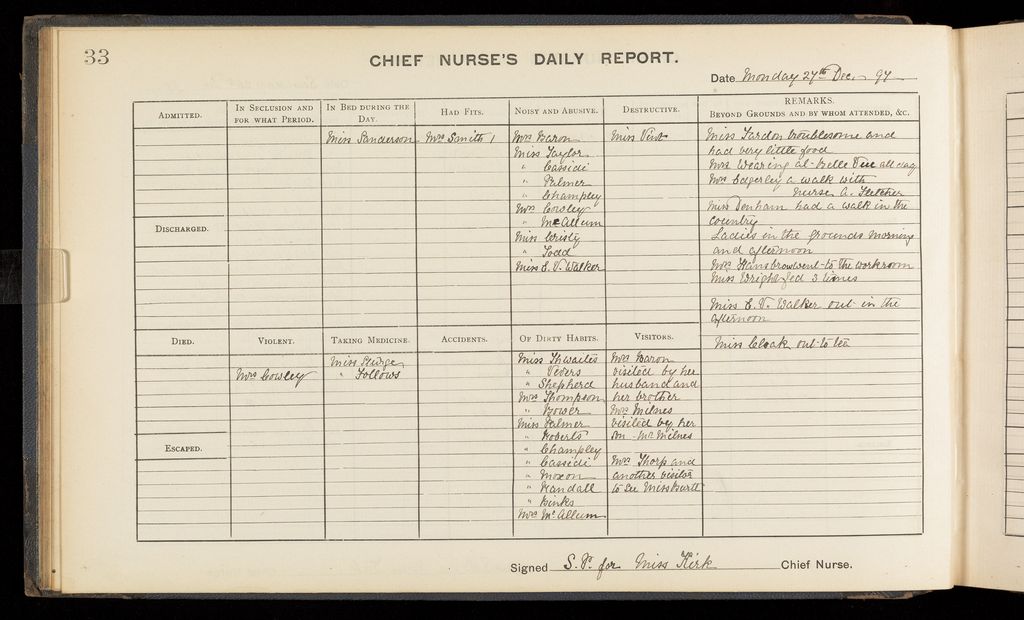 33
CHIEF NURSE'S DAILY REPORT.
Date Monday 27th Dec. 97
ADMITTED.
IN SECLUSION AND
FOR WHAT PERIOD.
IN BED DURING THE
DAY.
Miss Sanderson
HAD FITS.
Mrs Smith 1
NOISY AND ABUSIVE.
Mrs Baron
Miss Taylor
" Cassidi
" Palmer
" Champley
Mrs Cowley
" McAllum
Miss
" Todd
Miss E. V. Walker
DESTRUCTIVE.
Miss Vent
REMARKS.
BEYOND GROUNDS AND BY WHOM ATTENDED, &C.
Miss troublesome and
had very little food
Mrs Wearing at all day
Mrs Edgerley a walk with
nurse A. Fletcher
Miss Denham had a walk in the
country
Ladies in the grounds morning
and afternoon
Mrs Hansbrow went to the workroom
Miss Wright fed 3 times
Miss E. V. Walker out in the
afternoon
Miss Cloak out to tea
DISCHARGED.
DIED.
VIOLENT.
Mrs Cowley
TAKING MEDICINE.
Miss
" Follows
ACCIDENTS.
OF DIRTY HABITS.
Miss Thwaites
" Vevers
" Shepherd
Mrs Thompson
" Bower
Miss Palmer
" Roberts
" Champley
" Cassidi
" Moxon
" Randall
" Binks
Mrs McAllum
VISITORS.
Mrs Baron
visited by her
husband and
her brother
Mrs Milnes
visited by her
son Mr Milnes
Mrs Thorp and
another visitor
to see Miss
ESCAPED.
Signed S. P. for Miss Kirk Chief Nurse.